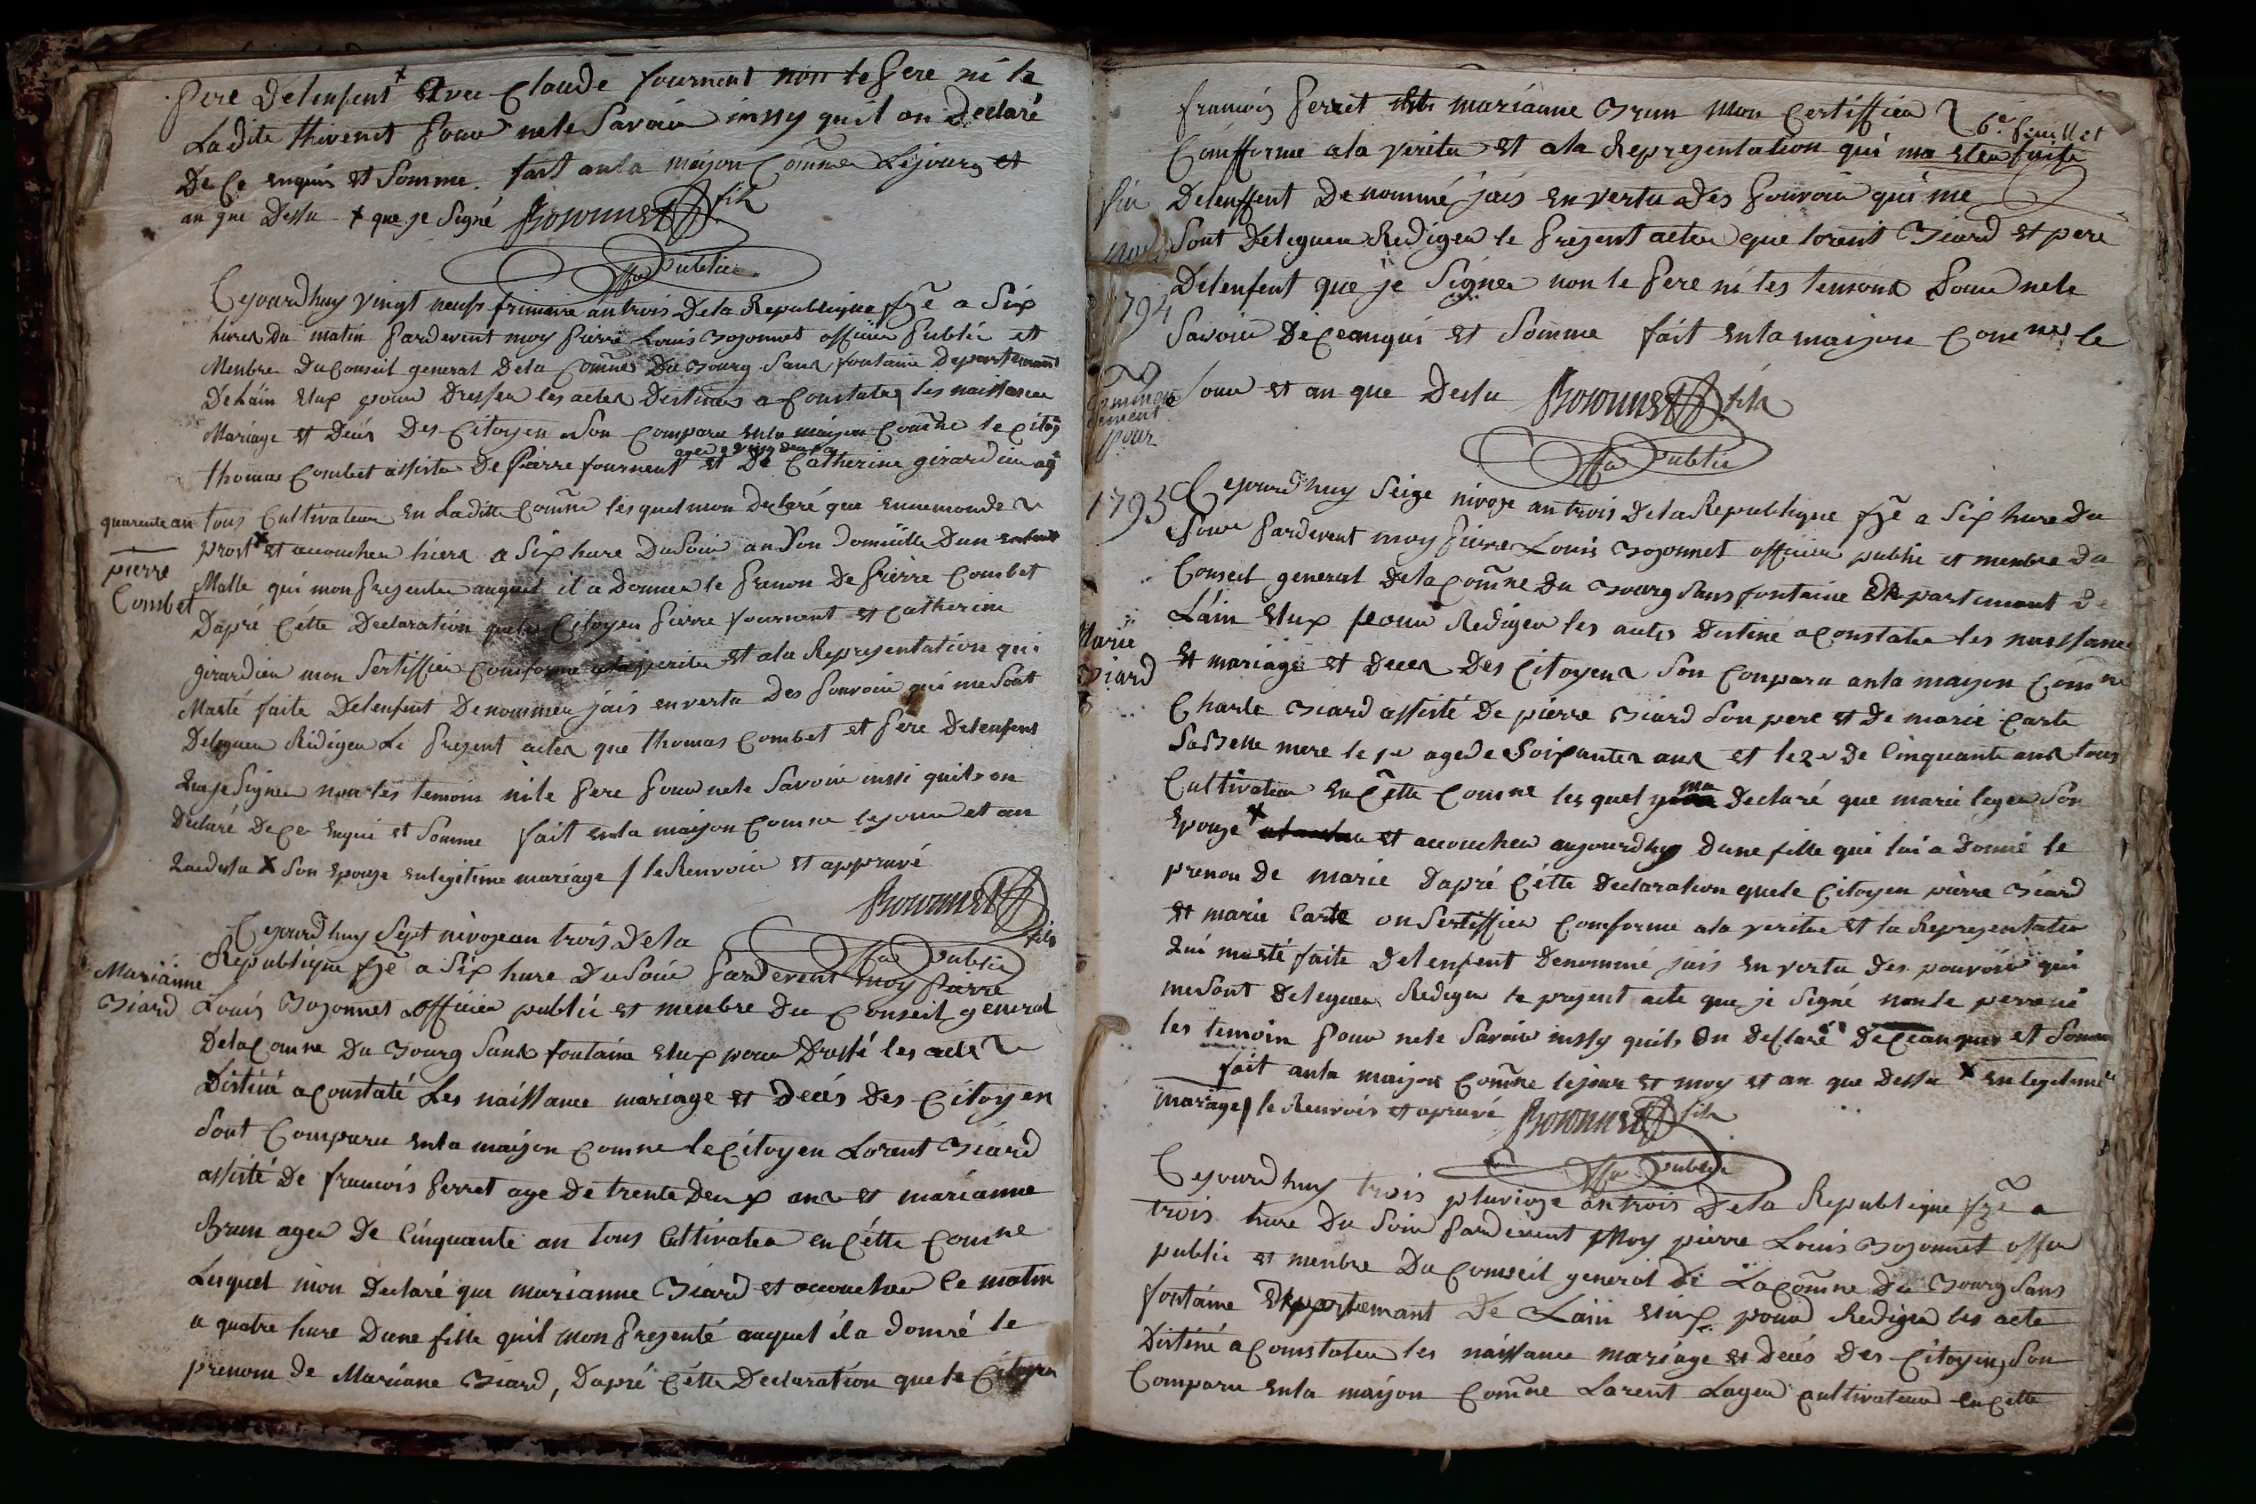 pere delenfent x Avec Claude fournent non le pere ni la
Ladite thivent pour nele Savoir inssy quil on declaré
De Ce enquis et Somme. fait anla maison Comne Lejours et
an que Dessu x que je Signé Bojonnet fils
offer Publie
Cejourdhuy vingt neufs frimaire an trois Dela Republique fze a Six
hures du matin pardevent moy pierre Louis Bojonnet officier Publie et
Menbre Du Conseil general Dela Comne Du Bourg Sans fontaine Departemant
De Lain Elux pour Dresser les actes Destines a Constater les naissance
Mariage et Deces Des Citoyen Son Comparu enla maison Comne le Citoy
thomas Combet assista De Pierre fournent et De Catherine girardin ag
quarente an
tous Cultivateur En Laditte Comne lesquel mon declaré que ennemonde
prost x et accouchee hiere a Six hure DuSoir an Son domicille Dun enfent
pierre
Combet
Malle qui mon presenter auquel il a Donner le prenon De pierre Combet
Dapré Cétte Declaration quele Citoyen pierre fournent et Catherine
girardin mon Sertiffier Comforme ala verita et ala Representation qui
Masté faite Delenfent Denommer jais envertu Des pouvoir qui me Sont
Deleguer Rédiger Le present acter que thomas Combet et pere Delenfent
Que je Signer non les temoins ni le pere pour nele Savoir inssi quils on
Declaré De Ce Enquis et Somme fait enla maison Comne le jour et an
Quedessu x Son Epouze enlegitime mariage / le Renvoir et appruvé
Bojonnet fils
offer Publie
Cejourdhuy Sept nivoze an trois Dela
Republique fze a Six hure DuSoir pardevent moy pierre
Marianne
Biard
Louis Bojonnet officier publié et menbre Du Conseil general
Dela Comne Du Bourg Sans fontaine Elux pour Dressé les acter
Déstiné a Constaté Les naissance mariage et Decés Des Citoyen
Sont Comparu enla maison Comne le Citoyen Lorent Biard
assisté De francois perret age De trente Deux ans et marianne
Brun ager De Cinquante an tous Cultivater en Cétte Comne
Lesquel mon Declaré que marianne Biard et accoucher le matin
a quatre hure Dune fille quil mon presenté auquel ila donné le
prenom de Marianne Biard, Dapré Cétte Declaration que le Citoyen
francois perret et marianne Brun Mon Certiffier
6e feuillet
Comfforme ala verita et ala Representation qui ma etea faite
Delenffent Denommé jais en vertu Des pouvoir qui me
Sont Deleguer Rediger le present acter que lorent Biard et pere
Delenfent que je Signer non le pere ni les temoins pour nele
1794
Savoir De Ceanqui et Somme fait enla maison Comne le
Jour et an que Dessu Bojonnet fils
offer Publie
pour
1795
Cejourdhuy Seize nivoze an trois Dela Republique fze a Six hure Du
Soir pardevent moy pierre Louis Bojonnet officier public et menbre Du
Conseil general Dela Comne Du Bourg Sans fontaine Departemant De
Lain Elux pour Rediger les actes Destiné a Constater les naissance
Marie
Biard
et mariage et Deces Des Citoyens Son Conparu anla maison Comne
Charle Biard assisté De pierre Biard Son pere et De marie Carte
Sa Belle mere le 1er age de Soixantes ans et le 2e De Cinquante ans tous
Cultivateur En Cétte Comne lesquel mon Declaré que marie loger Son
Epouze x et accoucher aujourdhuy Dune fille qui lui a Donné le
prenon De marie Dapré Cétte Declaration quele Citoyen pierre Biard
et marie Carte on Sertiffier Comforme ala verite et la Representatio
Qui masté faite Delenfent Denommé jais En vertu Des pouvoir qui
me Sont Deleguer Rediger le present acte que je Signé non le perre ni
les temoin pour nele Savoir inssy quils on declaré De Ceanquis et Somme
fait anla maison Comne le jour et moy et an que Dessu x en legitime
mariage / le Renvois et apruvé Bojonnet fils
offer Publie
Cejourdhuy trois pluvioze an trois Dela Republique fze a
trois hure Du Soir pardevent Moy pierre Louis Bojonnet offer
public et menbre Du Conseil general De La Comne Du Bourg Sans
fontaine Departemant De Lain Elux pour Rediger les acte
Déstiné a Constater les naissance mariage et decés Des Citoyens Son
Comparu enla maison Comne Larent Loger Cultivateur en Cette